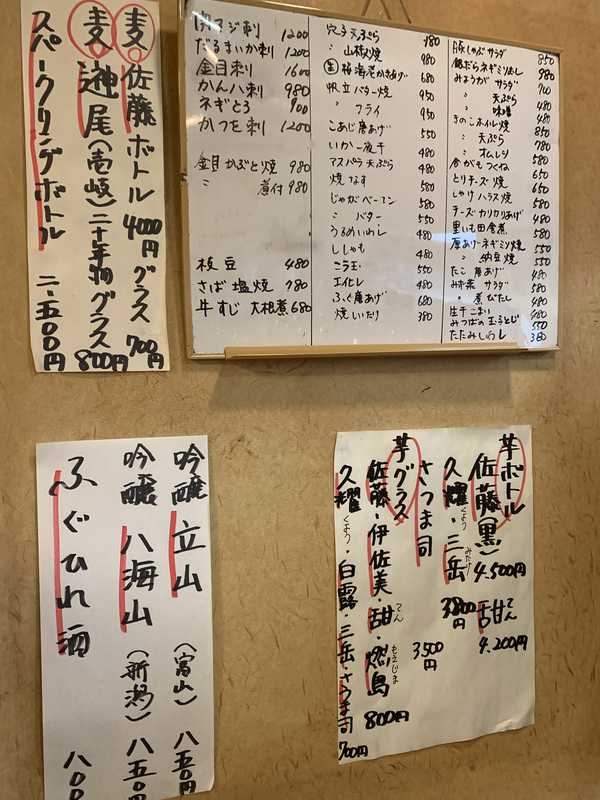 麦佐藤ボトル4000円グラス700円
麦 尾(壱岐)二十年物グラス800円
スパークリングボトル 二、五〇〇円
アジ刺 1200
だるまいか刺 1200
金目刺 1600
かんパ刺 980
ネギとろ 900
かつを刺 1200
金目かぶと焼 980
〃 煮付 980
枝豆 480
さば塩焼 780
牛すじ大根煮 680
穴子天ぷら 980
〃 山椒焼 980
桜海老かきあげ 680
帆立バター焼 950
〃 フライ 950
こあじ唐あげ 550
いか一夜干 480
アスパラ天ぷら 480
焼なす 480
じゃがベーコン 580
〃 バター 550
うるめいわし 480
ししゃも 480
ニラ玉 550
エイヒレ 480
ふぐ唐あげ 680
焼いたり 380
豚しゃぶサラダ 850
銀だらネギミソむし 980
みょうがサラダ 700
〃 天ぷら 480
〃 味噌 480
きのこホイル焼 850
〃 天ぷら 780
〃 オムレツ 580
合がもつくね 650
とりチーズ焼 650
しゃけハラス焼 580
チーズカリカリあげ 480
里いも田舎煮 580
厚あげネギミソ焼 550
〃 納豆焼 580
たこ唐あげ 480
みず菜サラダ 580
〃 煮びたし 480
生干こまい 480
みつばの玉子とじ 550
たたみいわし 380
吟醸 立山 (富山) 八五〇円
吟醸 八海山 (新潟) 八五〇円
ふぐひれ酒 八〇〇
芋ボトル
佐藤(黒)4.500円 甜てん 4.200円
久耀くよう・三岳みたけ 3800円
さつま司 3500円
芋グラス
佐藤・伊佐美・甜てん・燃島もえじま 800円
久耀くよう・白露・三岳・さつま司 700円